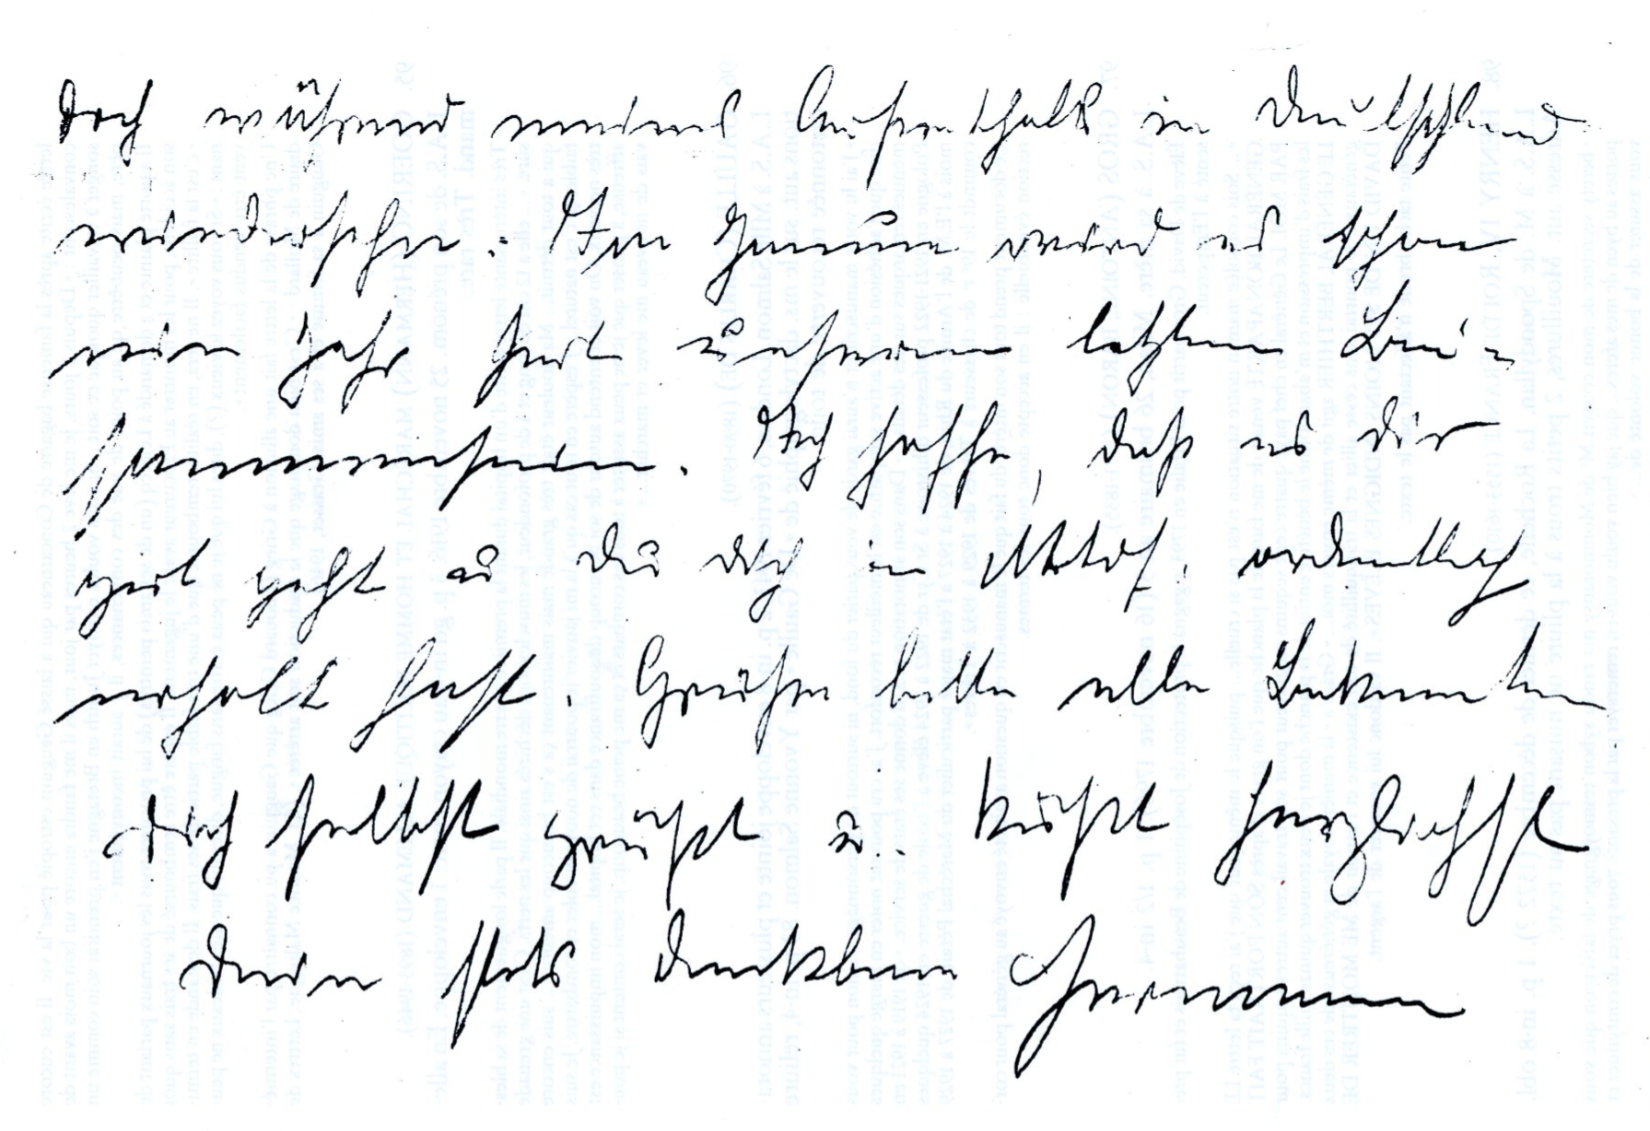 doch während meines Aufenthalts in Deutschland
wiedersehn. Im Januar wird es schon
ein Jahr seit unserem letzten Bei-
sammensein. Ich hoffe, daß es dir
gut geht u du dich in ordentlich
erholt hast. Grüße bitte alle Bekannten
dich selbst grüßt u. küßt herzlichst
Dein stets dankbarer Hermann